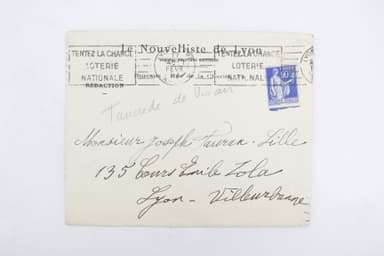 Le Nouvelliste de Lyon
TENTEZ LA CHANCE
LOTERIE
NATIONALE
TENTEZ LA CHANCE
LOTERIE
NATIONALE
RÉDACTION
FEVR
Tancrède de Visan
Monsieur Joseph Lille
135 Cours Emile Zola
Lyon - Villeurbanne